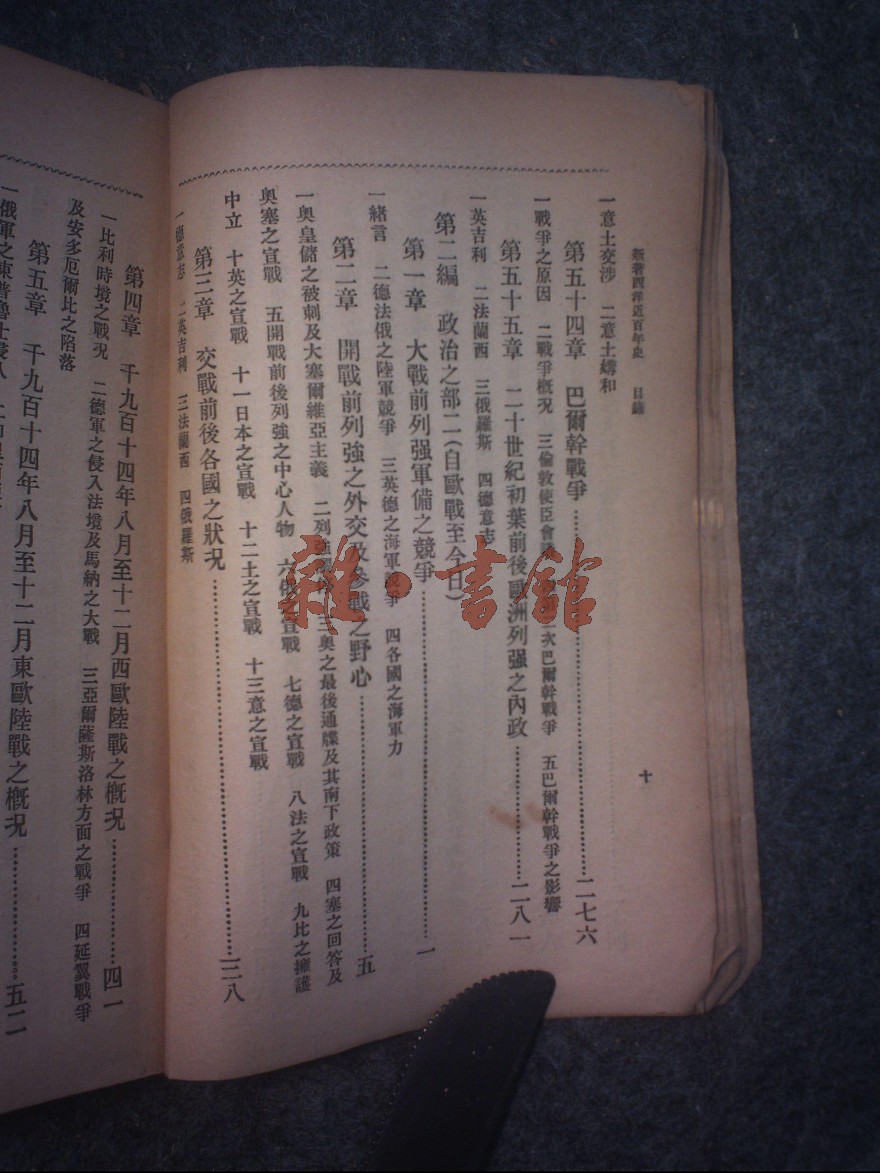 新著西洋近百年史　目錄
十
一意土交涉　二意土媾和
第五十四章　巴爾幹戰爭……二七六
一戰爭之原因　二戰爭概況　三倫敦使臣會　次巴爾幹戰爭　五巴爾幹戰爭之影響
第五十五章　二十世紀初葉前後歐洲列强之內政……二八一
一英吉利　二法蘭西　三俄羅斯　四德意志
第二編　政治之部二(自歐戰至今日)
第一章　大戰前列强軍備之競爭……一
一緒言　二德法俄之陸軍競爭　三英德之海軍競爭　四各國之海軍力
第二章　開戰前列強之外交及參戰之野心……五
一奥皇儲之被刺及大塞爾維亞主義　二列強　三奥之最後通牒及其南下政策　四塞之回答及
奥塞之宣戰　五開戰前後列強之中心人物　六俄之宣戰　七德之宣戰　八法之宣戰　九比之擁護
中立　十英之宣戰　十一日本之宣戰　十二土之宣戰　十三意之宣戰
第三章　交戰前後各國之狀况……三八
一德意志　二英吉利　三法蘭西　四俄羅斯
第四章　千九百十四年八月至十二月西歐陸戰之概况……四一
一比利時境之戰况　二德軍之侵入法境及馬納之大戰　三亞爾薩斯洛林方面之戰爭　四延翼戰爭
及安多厄爾比之陷落
第五章　千九百十四年八月至十二月東歐陸戰之概况……五二
一俄軍之東普魯士侵入
雜·書館